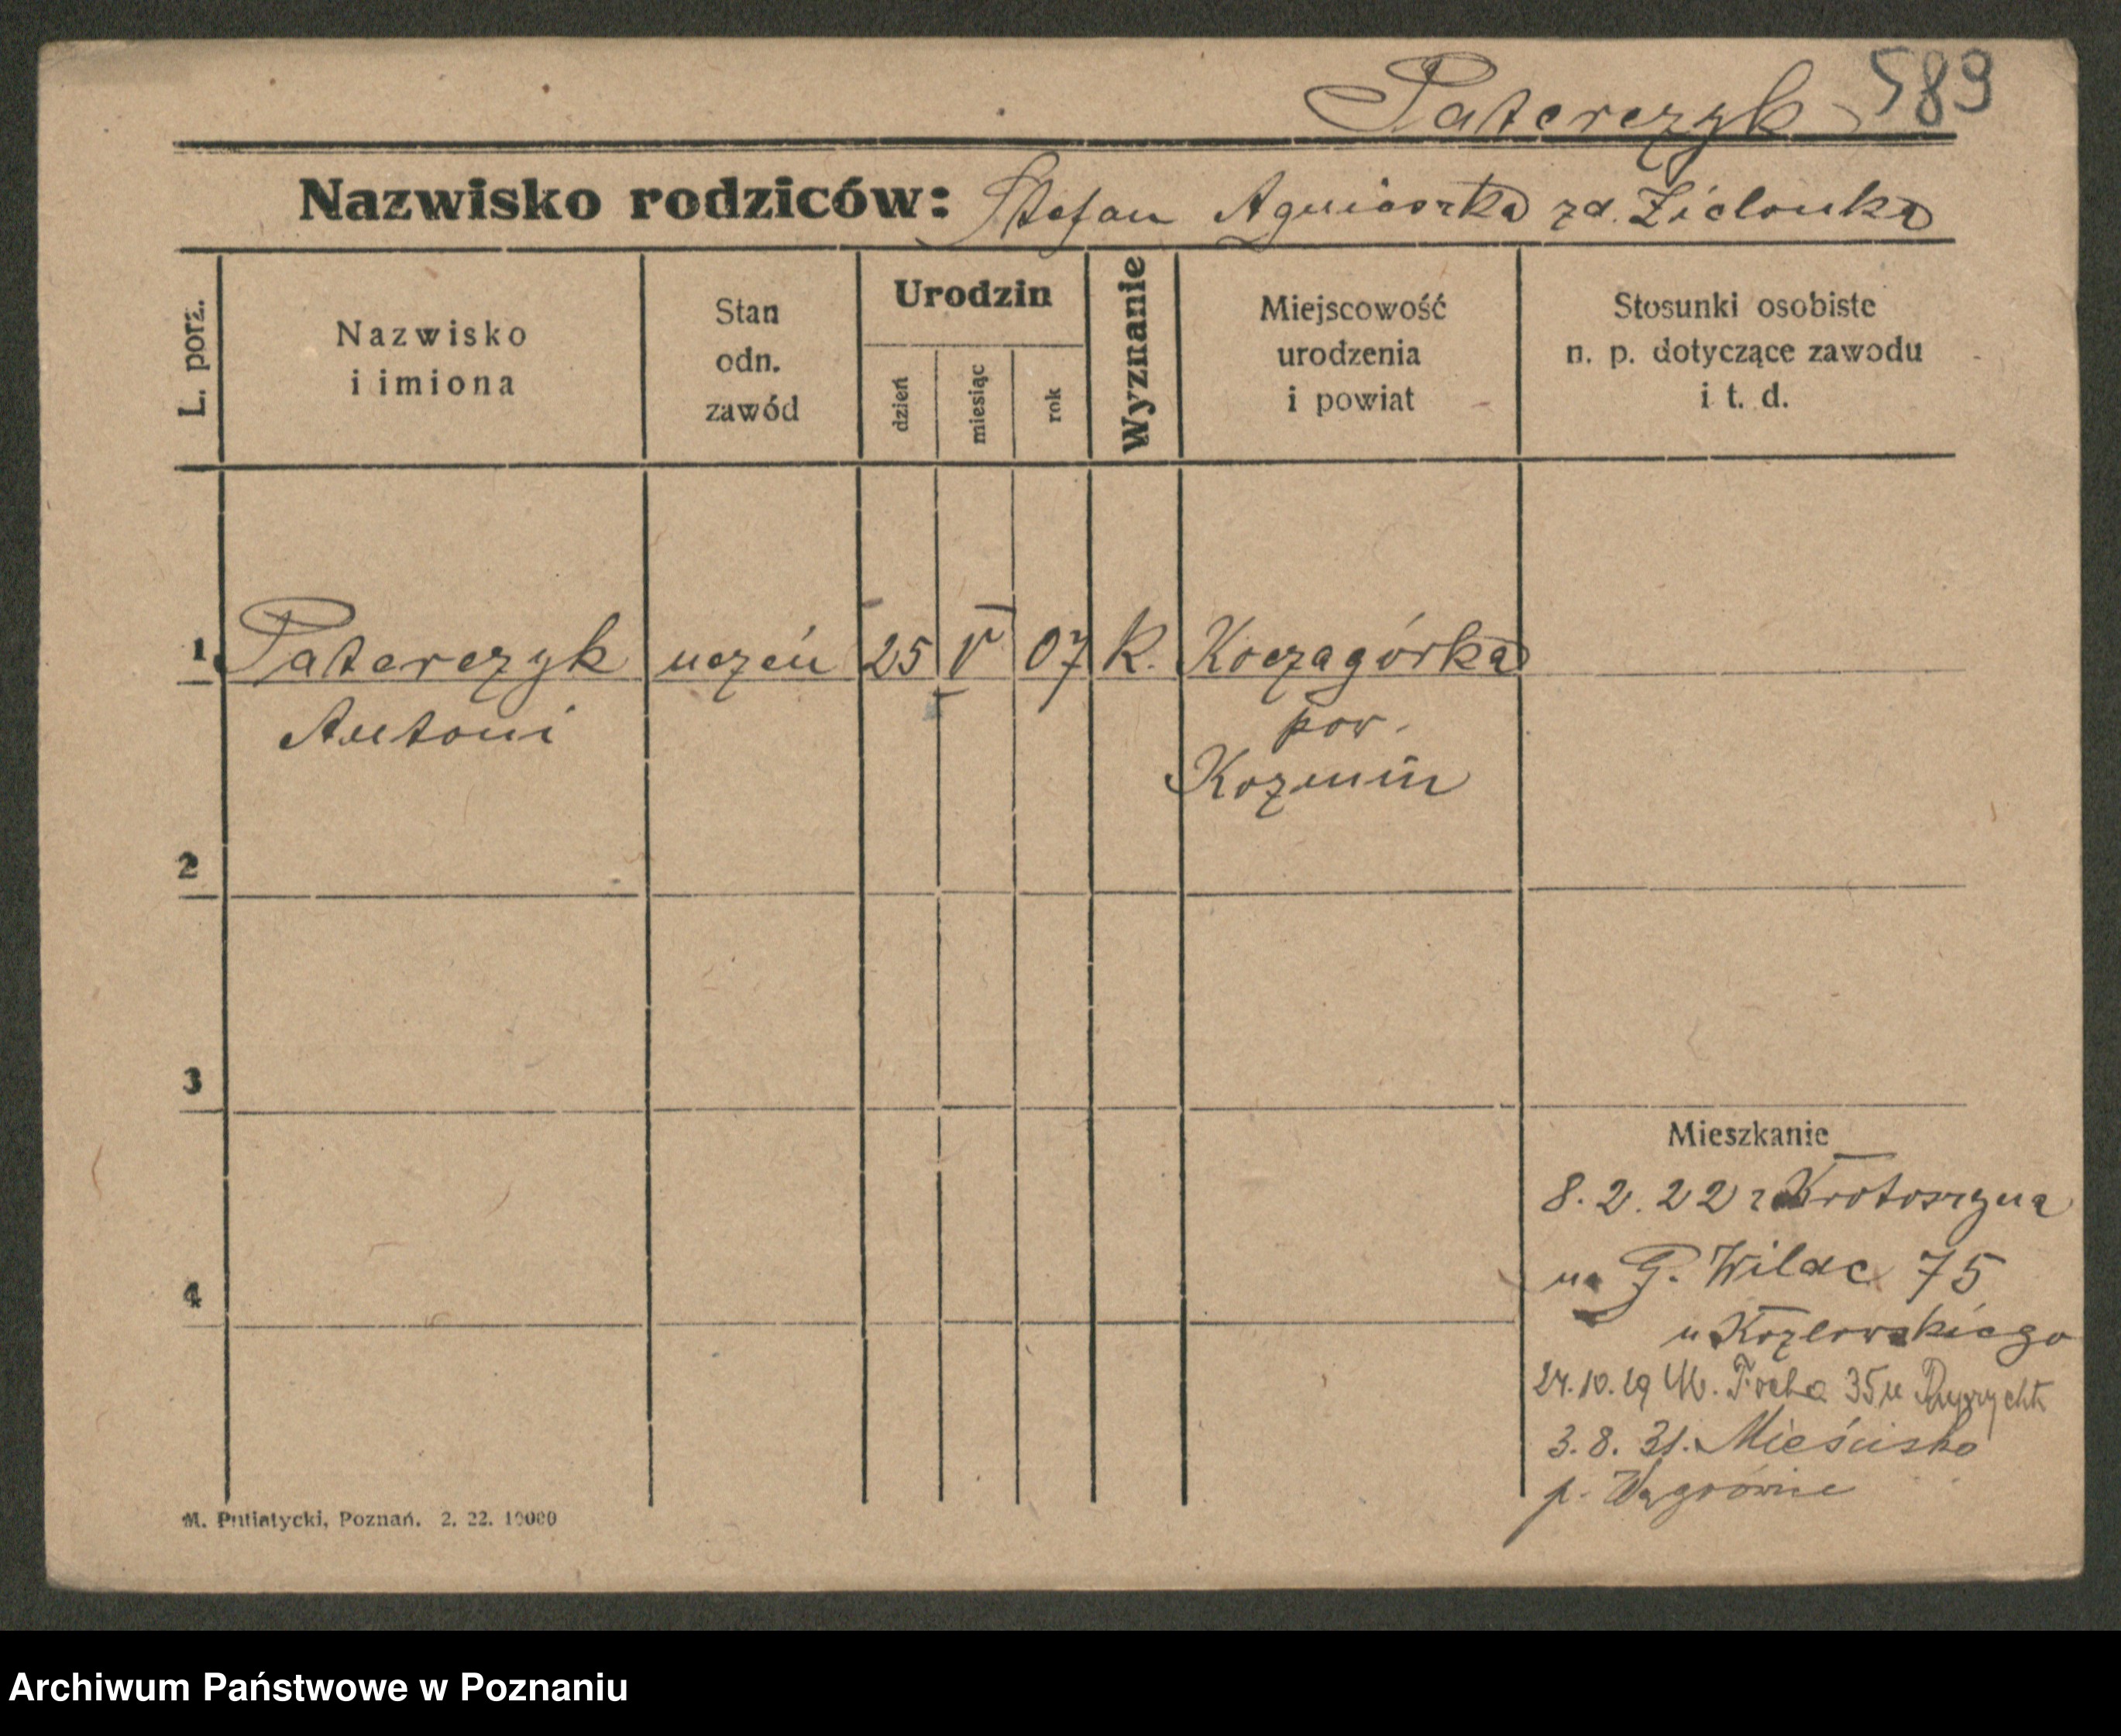 Paterczyk 589
Nazwisko rodziców: Stefan Agnieszka zd. Zielonka
L. porz.
Nazwisko
i imiona
Stan
odn.
zawód
Urodzin
dzień
miesiąc
rok
Wyznanie
Miejscowość
urodzenia
i powiat
Stosunki osobiste
n. p. dotyczące zawodu
i t. d.
1 Paterczyk uczeń 25 V 07 k. Koczagórka
Antoni pow.
Kozmin
2
3
4
Mieszkanie
8. 2. 22 z Krotoszyna
na G. Wilde 75
u Kozlowskiego
24. 10. 29 M. Focha 35 u
3. 8. 31. Mieścisko
p. Wągrowiec
M. Putiatycki, Poznań. 2. 22. 10000
Archiwum Państwowe w Poznaniu